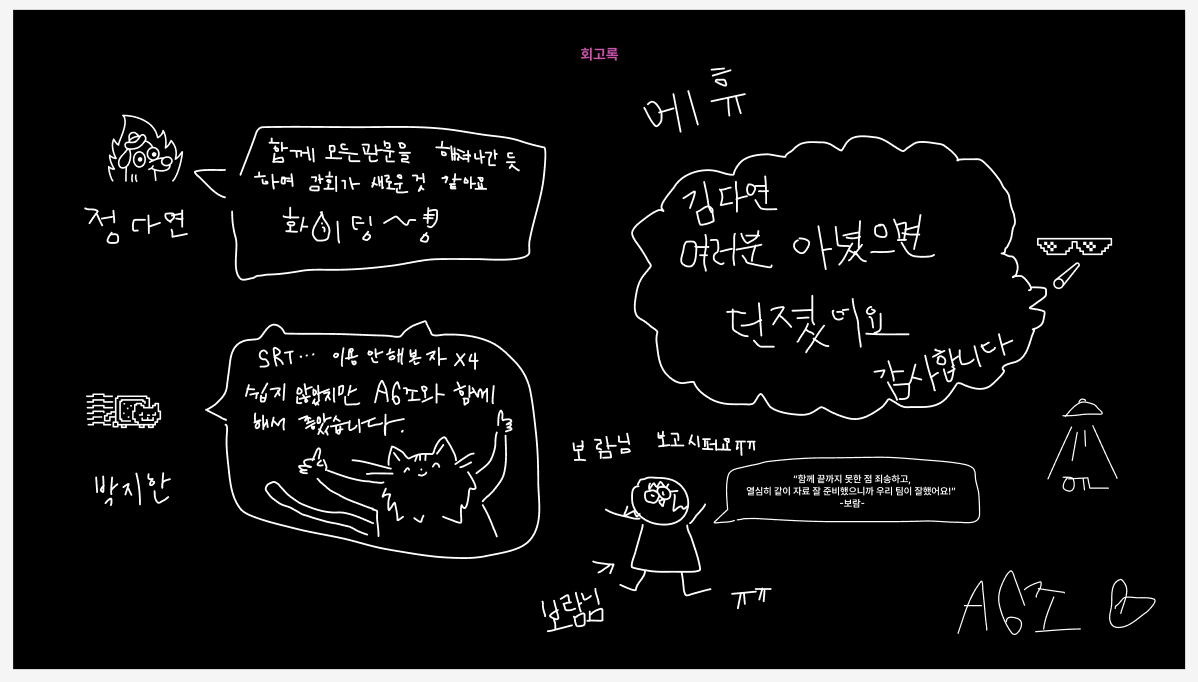 회고록
에휴
함께 모든관문을 해쳐나간 듯
하여 감회가 새로운것 같아요
화이팅~!
정다연
김다연
여러분 아녔으면
던졌어요
감사합니다
SRT... 이용 안해본 자 X4
쉽지 않았지만 A6조와 함께
해서 좋았습니다.
박지한
보람님 보고시퍼요ㅠㅠ
"함께 끝까지 못한 점 죄송하고,
열심히 같이 자료 잘 준비했으니까 우리 팀이 잘했어요!"
-보람-
보람님
ㅠㅠ
A6조